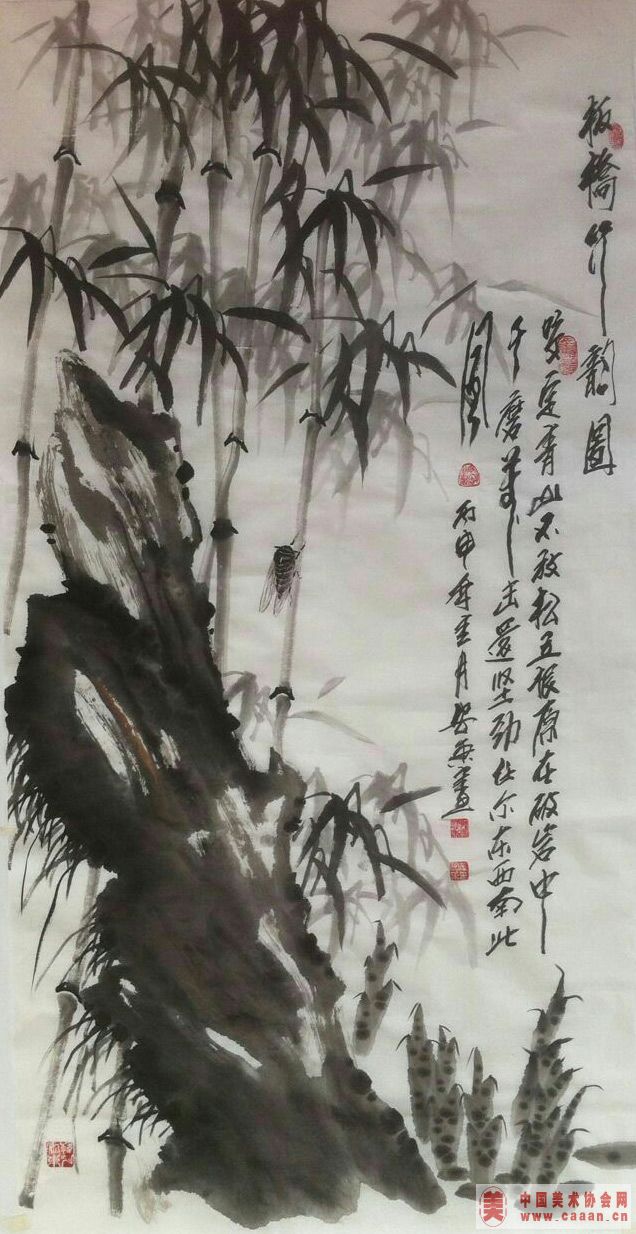 板橋竹韵圖
咬定青山不放松立根原在破岩中
千磨萬击還坚劲任尔东西南北
風
丙申年月畫
美
中国美术协会网
www.caaan.cn